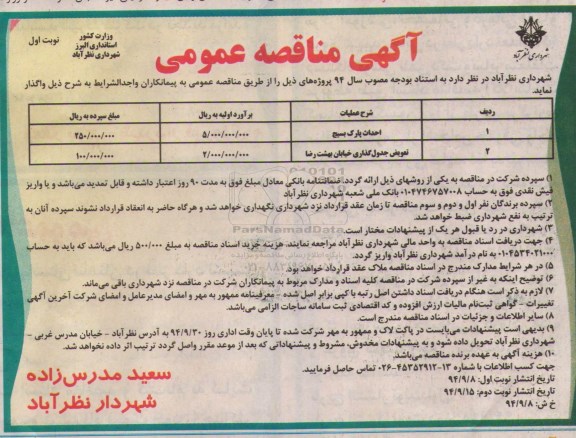 شهرداری نظرآباد
وزارت کشور
استانداری البرز
شهرداری نظرآباد
نوبت اول
آگهی مناقصه عمومی
شهرداری نظرآباد در نظر دارد به استناد بودجه مصوب سال ۹۴ پروژه‌های ذیل را از طریق مناقصه عمومی به پیمانکاران واجدالشرایط به شرح ذیل واگذار
نماید.
ردیف شرح عملیات برآورد اولیه به ریال مبلغ سپرده به ریال
۱ احداث پارک بسیج ۵/۰۰۰/۰۰۰/۰۰۰ ۲۵۰/۰۰۰/۰۰۰
۲ تعویض جدول‌گذاری خیابان بهشت رضا ۲/۰۰۰/۰۰۰/۰۰۰ ۱۰۰/۰۰۰/۰۰۰
۱) سپرده شرکت در مناقصه به یکی از روشهای ذیل ارائه گردد. ضمانتنامه بانکی معادل مبلغ فوق به مدت ۹۰ روز اعتبار داشته و قابل تمدید می‌باشد و یا واریز
فیش نقدی فوق به حساب ۰۱۰۴۷۴۶۷۵۷۰۰۸ بانک ملی شعبه شهرداری نظرآباد
۲) سپرده برندگان نفر اول و دوم و سوم مناقصه تا زمان عقد قرارداد نزد شهرداری نگهداری خواهد شد و هرگاه حاضر به انعقاد قرارداد نشوند سپرده آنان به
ترتیب به نفع شهرداری ضبط خواهد شد.
۳) شهرداری در رد یا قبول هر یک از پیشنهادات مختار است.
۴) جهت دریافت اسناد مناقصه به واحد مالی شهرداری نظرآباد مراجعه نمایند. هزینه خرید اسناد مناقصه به مبلغ ۵۰۰/۰۰۰ ریال می‌باشد که باید به حساب
۰۱۰۴۵۳۴۰۲۱۰۰۰ به نام درآمد شهرداری نظرآباد واریز گردد.
۵) در هر شرایط مدارک مندرج در اسناد مناقصه ملاک عقد قرارداد خواهد بود.
۶) توضیح اینکه به غیر از سپرده شرکت در مناقصه کلیه اسناد و مدارک مربوط به پیمانکاران شرکت در مناقصه نزد شهرداری باقی می‌ماند.
۷) لازم به ذکر است هنگام دریافت اسناد داشتن اصل رتبه با کپی برابر اصل شده – معرفینامه ممهور به مهر و امضای مدیرعامل و امضای شرکت آخرین آگهی
تغییرات – گواهی ثبت‌نام مالیات ارزش افزوده و کد اقتصادی ثبت سامانه ساجات الزامی می‌باشد.
۸) سایر اطلاعات و جزئیات در اسناد مناقصه مندرج است.
۹) بدیهی است پیشنهادات می‌بایست در پاکت لاک و ممهور به مهر شرکت شده تا پایان وقت اداری روز ۹۴/۹/۳۰ به آدرس نظرآباد – خیابان مدرس غربی –
شهرداری نظرآباد تحویل داده شود و به پیشنهادات مخدوش، مشروط و پیشنهاداتی که بعد از موعد مقرر واصل گردد ترتیب اثر داده نخواهد شد.
۱۰) هزینه آگهی به عهده برنده مناقصه می‌باشد.
جهت کسب اطلاعات با شماره ۱۳-۴۵۳۵۲۹۱۲-۰۲۶ تماس حاصل فرمایید.
تاریخ انتشار نوبت اول: ۹۴/۹/۸
تاریخ انتشار نوبت دوم: ۹۴/۹/۱۵
خ ش: ۹۴/۹/۸
سعید مدرس‌زاده
شهردار نظرآباد
ParsNamadData